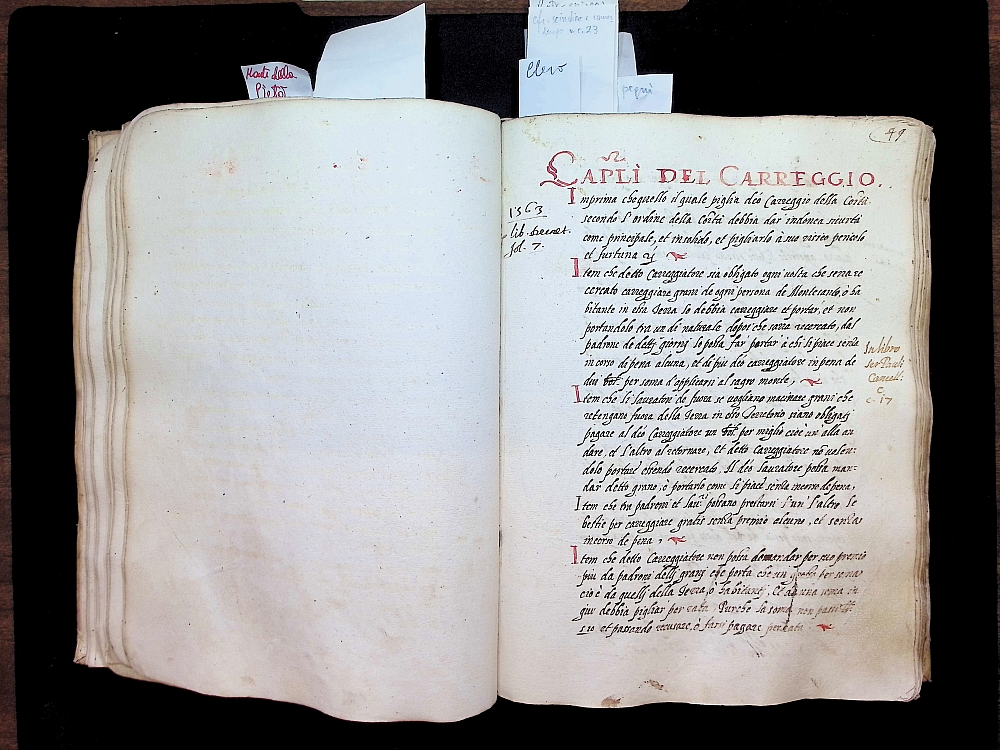 Monti della
Pietà
Clero
pegni
49
CAPLI DEL CARREGGIO.
Imprima che quello il quale piglia deo Carreggio della Corta
secondo l'ordine della Corta debbia dar' indonea sicurta
come principale, et insolido, et pigliarlo à suo risico pericolo
et furtuna
1563
lib. secret.
fol. 7.
Item che detto Carreggiatore sia obligato ogni volta che serrà re
cercato carreggiare grani de ogni persona de Montesanto, ò ha
bitante in essa Terra lo debbia carreggiare et portar, et non
portandolo tra un di naturale dopoi che sarrà recercato, dal
padrone de detti giorni lo possa far portar à chi li piace senza
incorso di pena alcuna, et di più deo carreggiatore in pena de
dui per soma d'applicarsi al sagro monte,
In libro
ser Pauli
Cancell.
c. 17
Item che li lauratori de fuora se vogliano macinare grani che
retengano fuora della Terra in esso Territorio siano obligati
pagare al deo Carreggiatore un per miglio cioè un' alla an
dare, et l'altro al retornare, et detto Carreggiatore nò volen:
dolo portare essendo recercato. Il deo lauratore possa man:
dar detto grano, ò portarlo come li piace senza incorso de pena,
Item che tra padroni et possano prestarsi l'un' l'altro le
bestie per carreggiare gratis senza premio alcuno, et senza
incorso de pena,
Item che detto Carreggiatore non possa demandar per suo premio
più da padroni delli grani che porta che un per soma
cio è da quelli della Terra, ò habitanti, Et una soma in
giu debbia pigliar per rata. Purche la soma non passi
110 et passando recusare, ò farsi pagare per rata